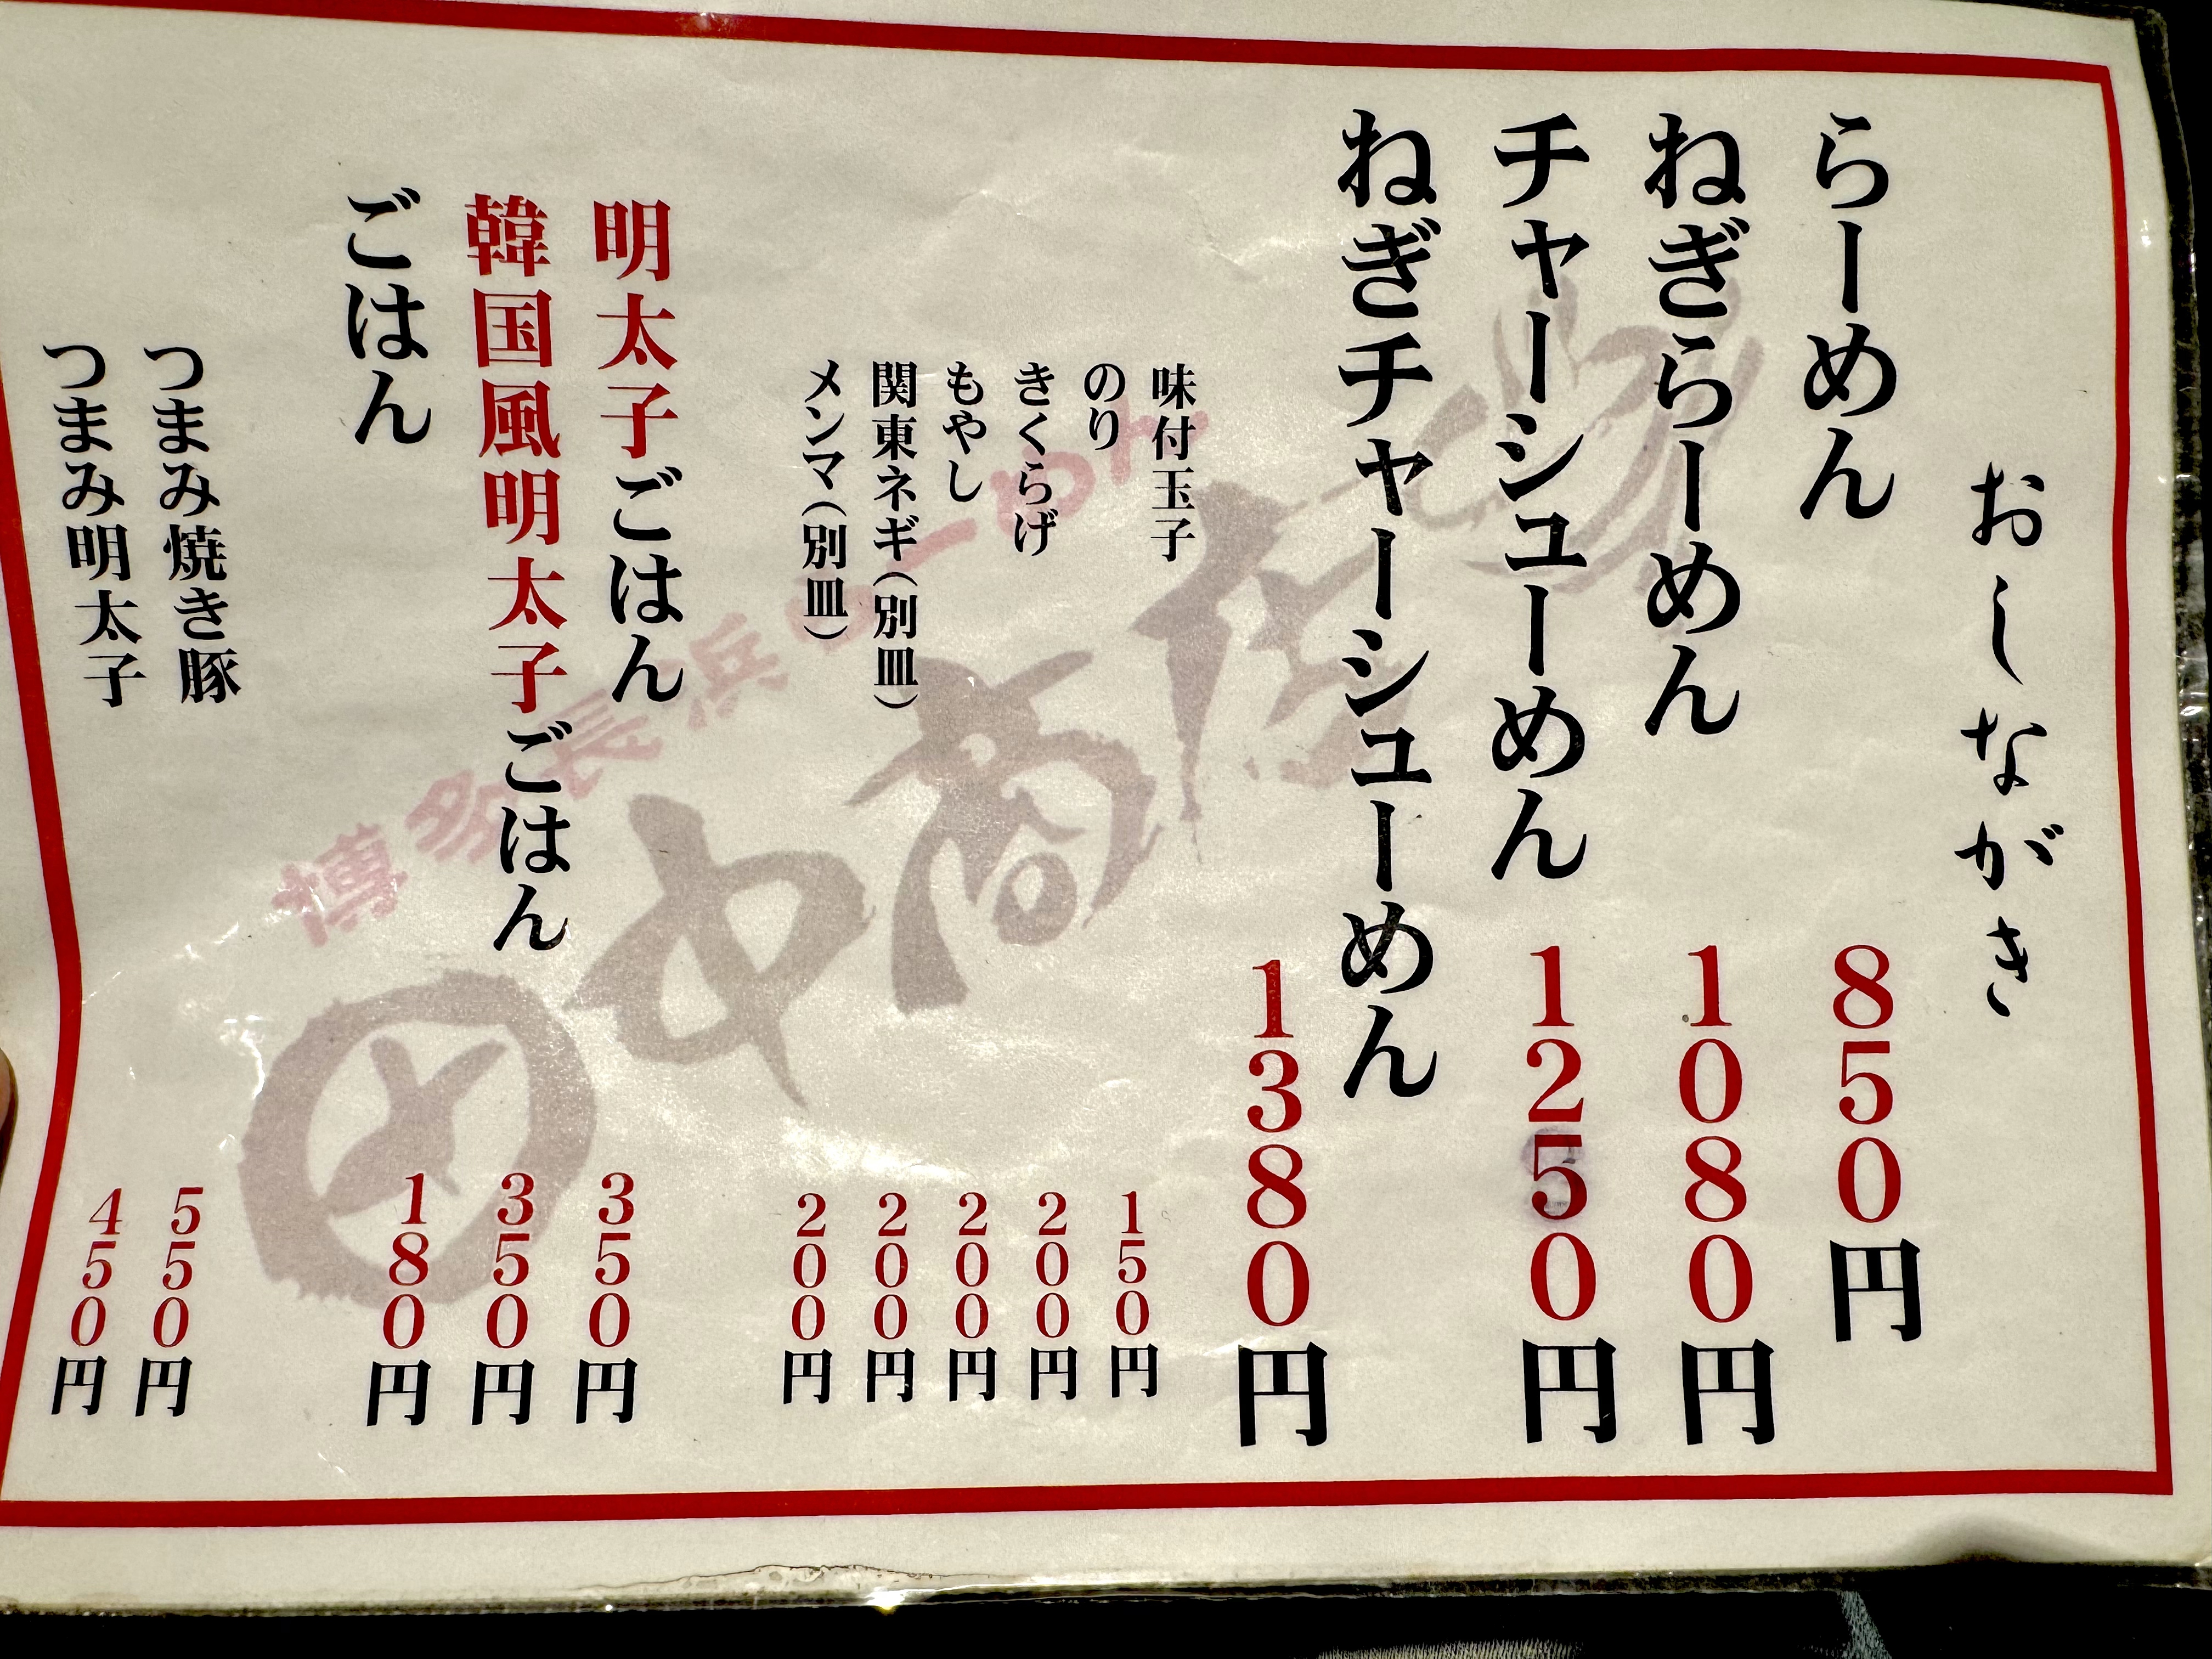 おしながき
らーめん 850円
ねぎらーめん 1080円
チャーシューめん 1250円
ねぎチャーシューめん 1380円
味付玉子
のり
きくらげ
もやし
関東ネギ（別皿）
メンマ（別皿）
150円
200円
200円
200円
200円
明太子ごはん 350円
韓国風明太子ごはん 350円
ごはん 180円
つまみ焼き豚 550円
つまみ明太子 450円
博多長浜らーめん
田中商店